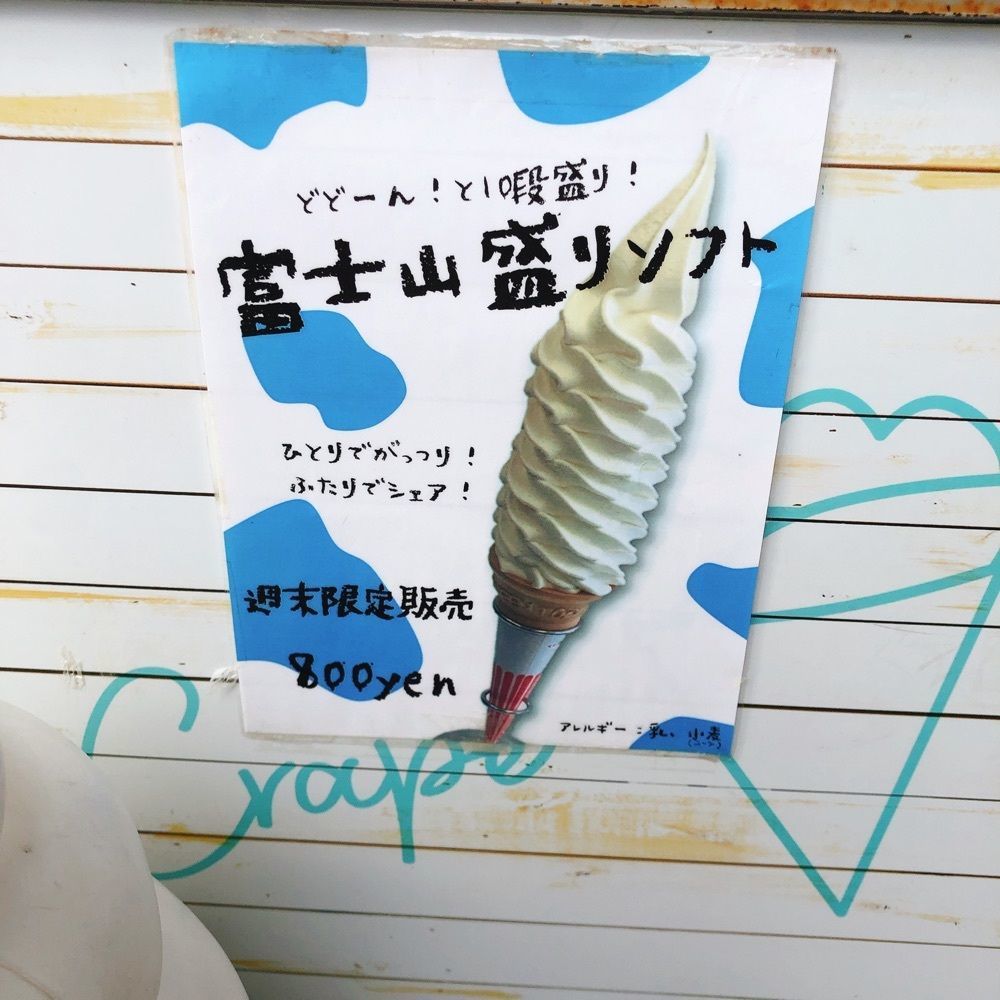 どどーん!と10段盛り!
富士山盛りソフト
ひとりでがっつり!
ふたりでシェア!
週末限定販売
800yen
アレルギー:乳、小麦
(コーン)
Crape